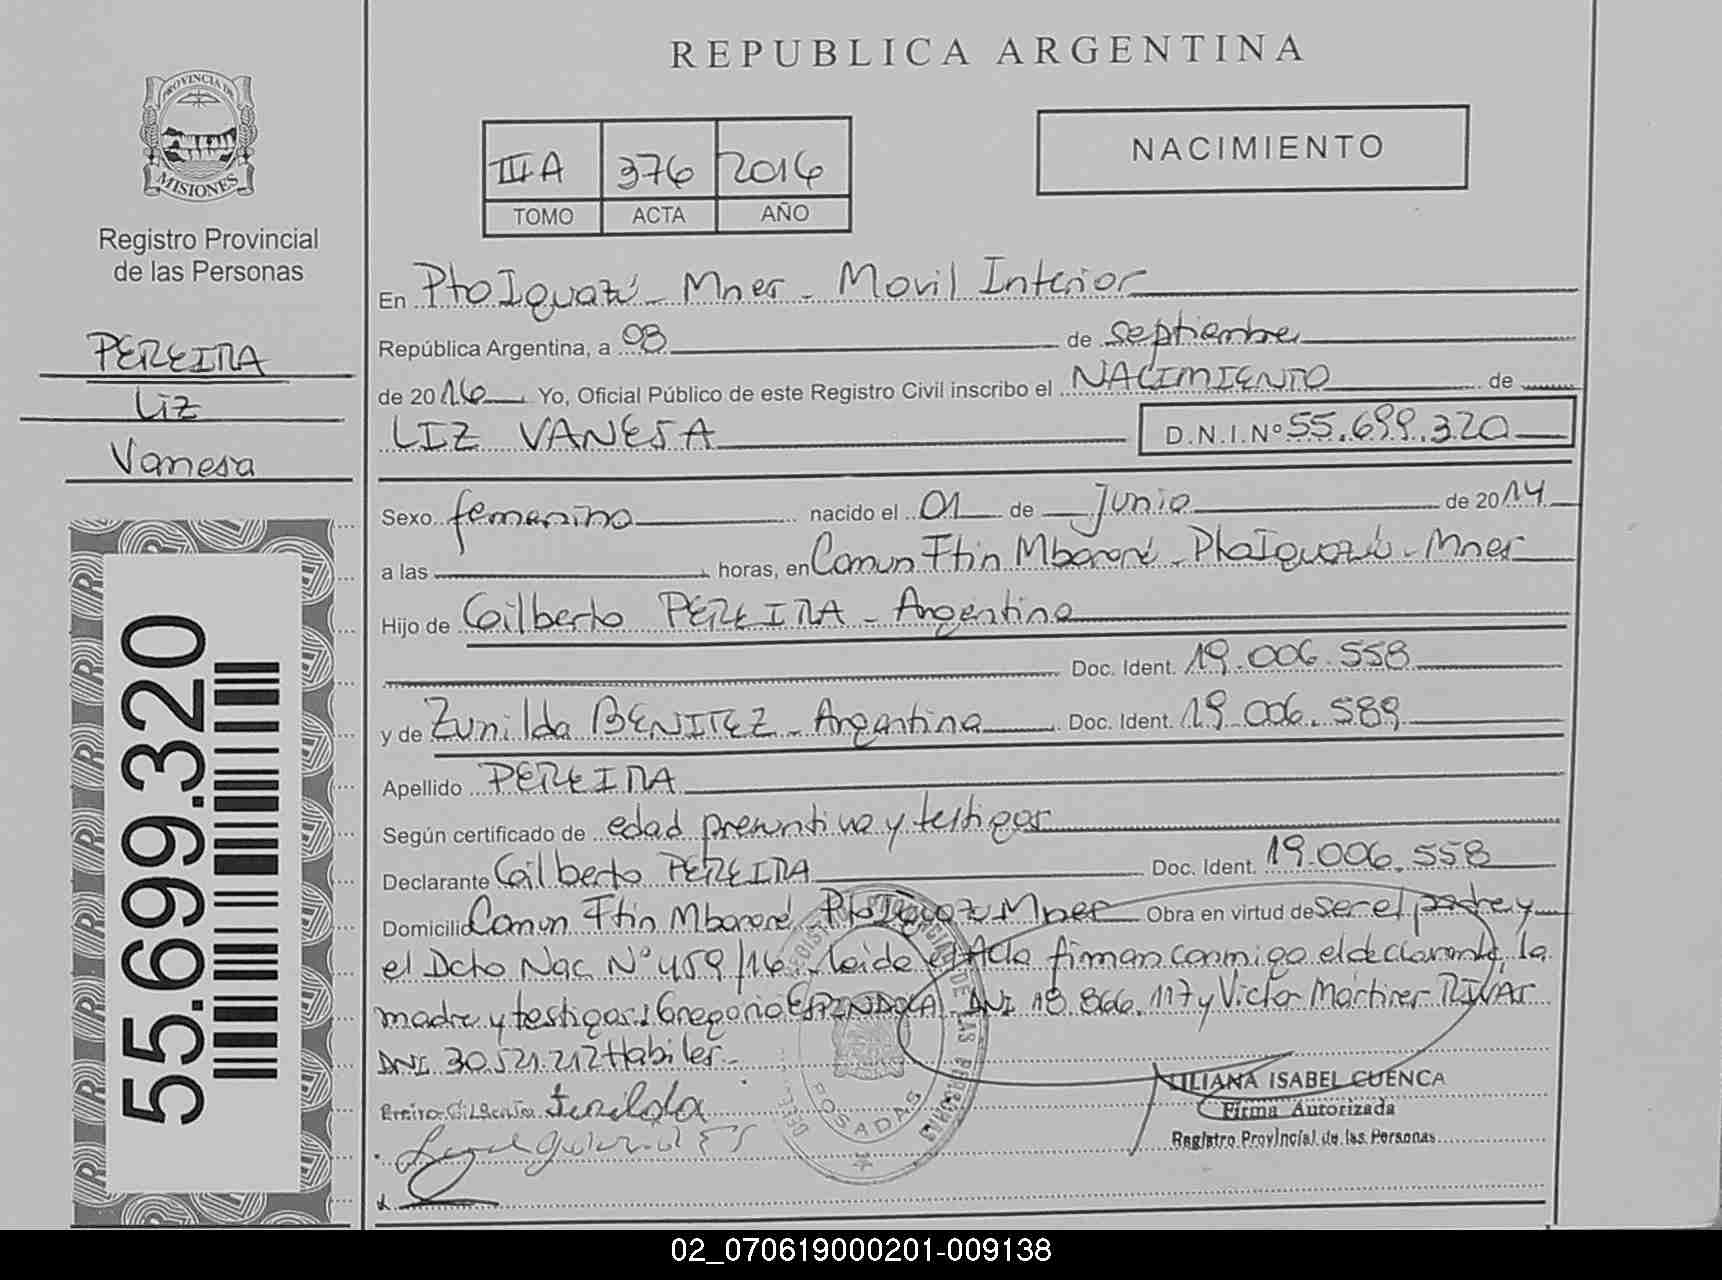 REPUBLICA ARGENTINA
PROVINCIA DE
MISIONES
Registro Provincial
de las Personas
PEREIRA
Liz
Vanesa
55.699.320
III A 376 2016
TOMO ACTA AÑO
NACIMIENTO
En Pto Iguazú - Mnes - Movil Interior
República Argentina, a 08 de septiembre
de 2016 Yo, Oficial Público de este Registro Civil inscribo el NACIMIENTO de
LIZ VANESA D.N.I.Nº 55.699.320
Sexo femenino nacido el 01 de Junio de 2014
a las horas, en Comun Ftin Mbororé - Pto Iguazú - Mnes
Hijo de Gilberto PEREIRA - Argentino
Doc. Ident. 19.006.558
y de Zunilda BENITEZ - Argentina Doc. Ident. 19.006.589
Apellido PEREIRA
Según certificado de edad presuntiva y testigos
Declarante Gilberto PEREIRA Doc. Ident. 19.006.558
Domicilio Comun Ftin Mbororé Pto Iguazu Mnes Obra en virtud de ser el padre y
el Dcto Nac Nº 459/16 - leida el Acta firman conmigo el declarante, la
madre y testigos: Gregorio ESPINDOLA DNI 18.866.117 y Victor Martires RIVAS
DNI 30.521.212 Habiles.-
LILIANA ISABEL CUENCA
Firma Autorizada
Registro Provincial de las Personas
POSADAS
02_070619000201-009138